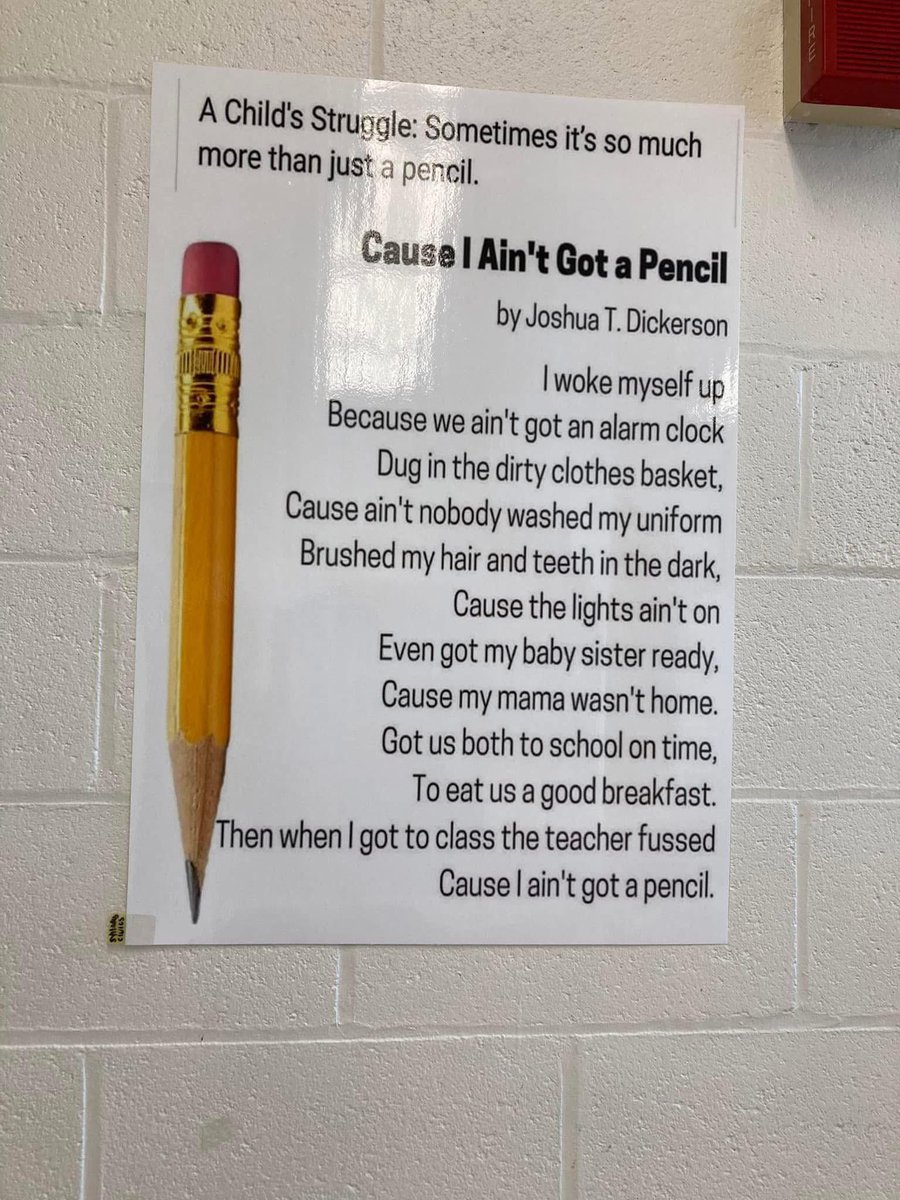 FIRE
A Child's Struggle: Sometimes it's so much
more than just a pencil.
Cause I Ain't Got a Pencil
by Joshua T. Dickerson
I woke myself up
Because we ain't got an alarm clock
Dug in the dirty clothes basket,
Cause ain't nobody washed my uniform
Brushed my hair and teeth in the dark,
Cause the lights ain't on
Even got my baby sister ready,
Cause my mama wasn't home.
Got us both to school on time,
To eat us a good breakfast.
Then when I got to class the teacher fussed
Cause I ain't got a pencil.